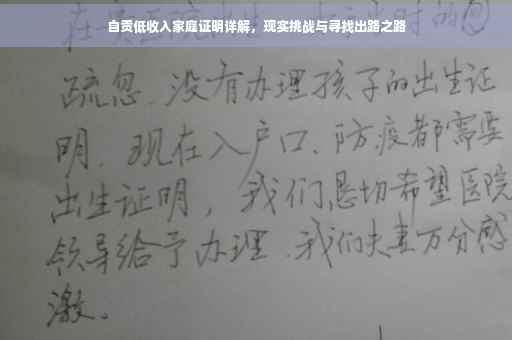 自贡低收入家庭证明详解，现实挑战与寻找出路之路
疏忽、没有办理孩子的出生证
明、现在入户口、防疫都需要
出生证明，我们恳切希望医院
领导给予办理、我们夫妻万分感
激。